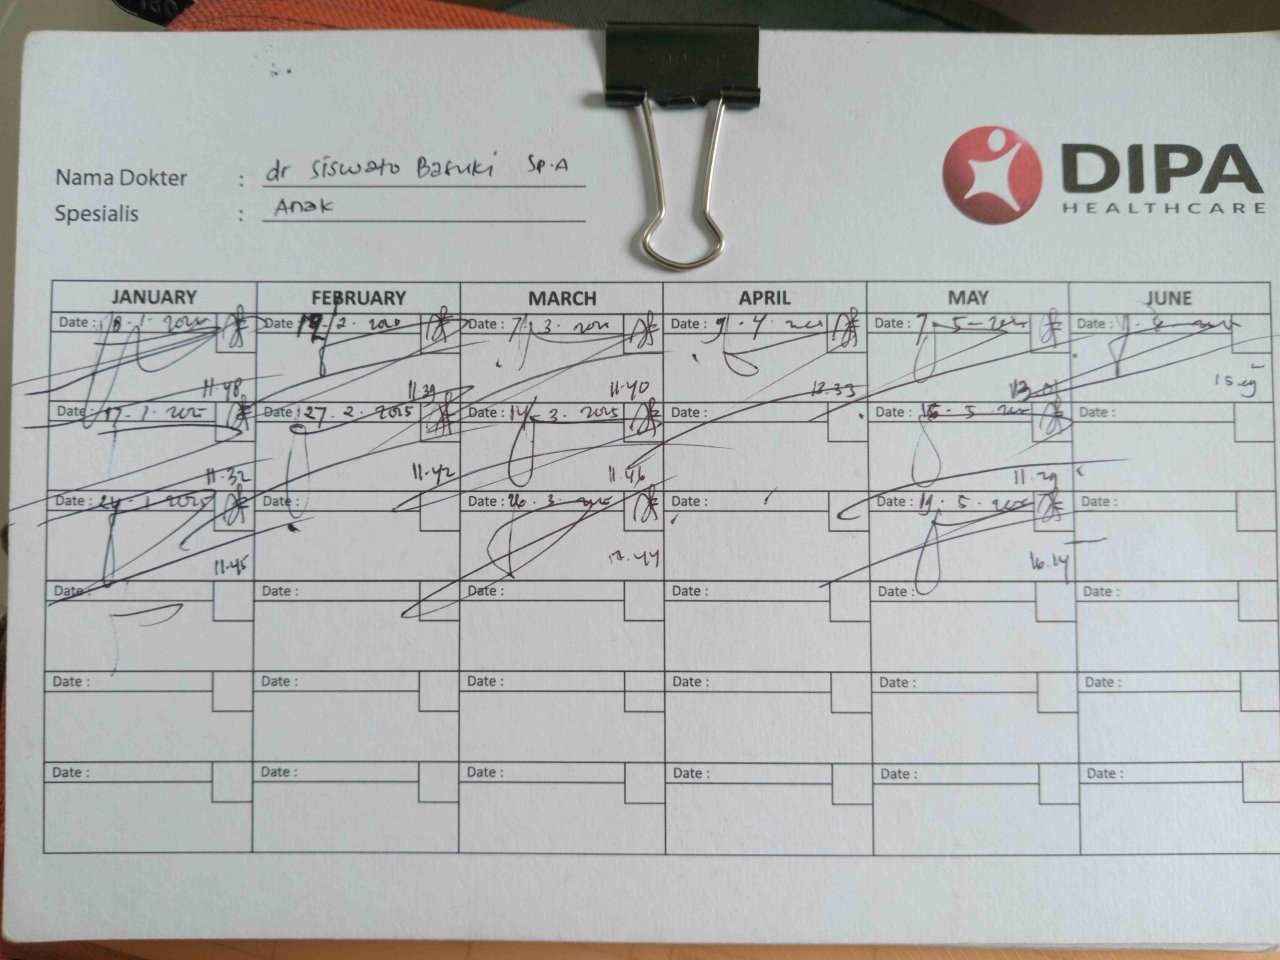 Nama Dokter : dr Siswato Basuki Sp.A
Spesialis : Anak
DIPA
HEALTHCARE
JANUARY FEBRUARY MARCH APRIL MAY JUNE
Date : Date Date : 7 . 3 . Date : 9 . 4 . Date : 7 . 5 - Date :
11.48 11.39 11.40 12.33 13.01
Date : 17 . 1 . 2025 Date : 27 . 2 . 2025 Date : 14 . 3 . 2025 Date : Date : 15 . 5 . Date :
11.32 11.42 11.46 11.29
Date : 24 . 1 . 2025 Date : Date : 26 . 3 . Date : Date : 19 . 5 . Date :
11.45 16.14
Date : Date : Date : Date : Date : Date :
Date : Date : Date : Date : Date : Date :
Date : Date : Date : Date : Date : Date :